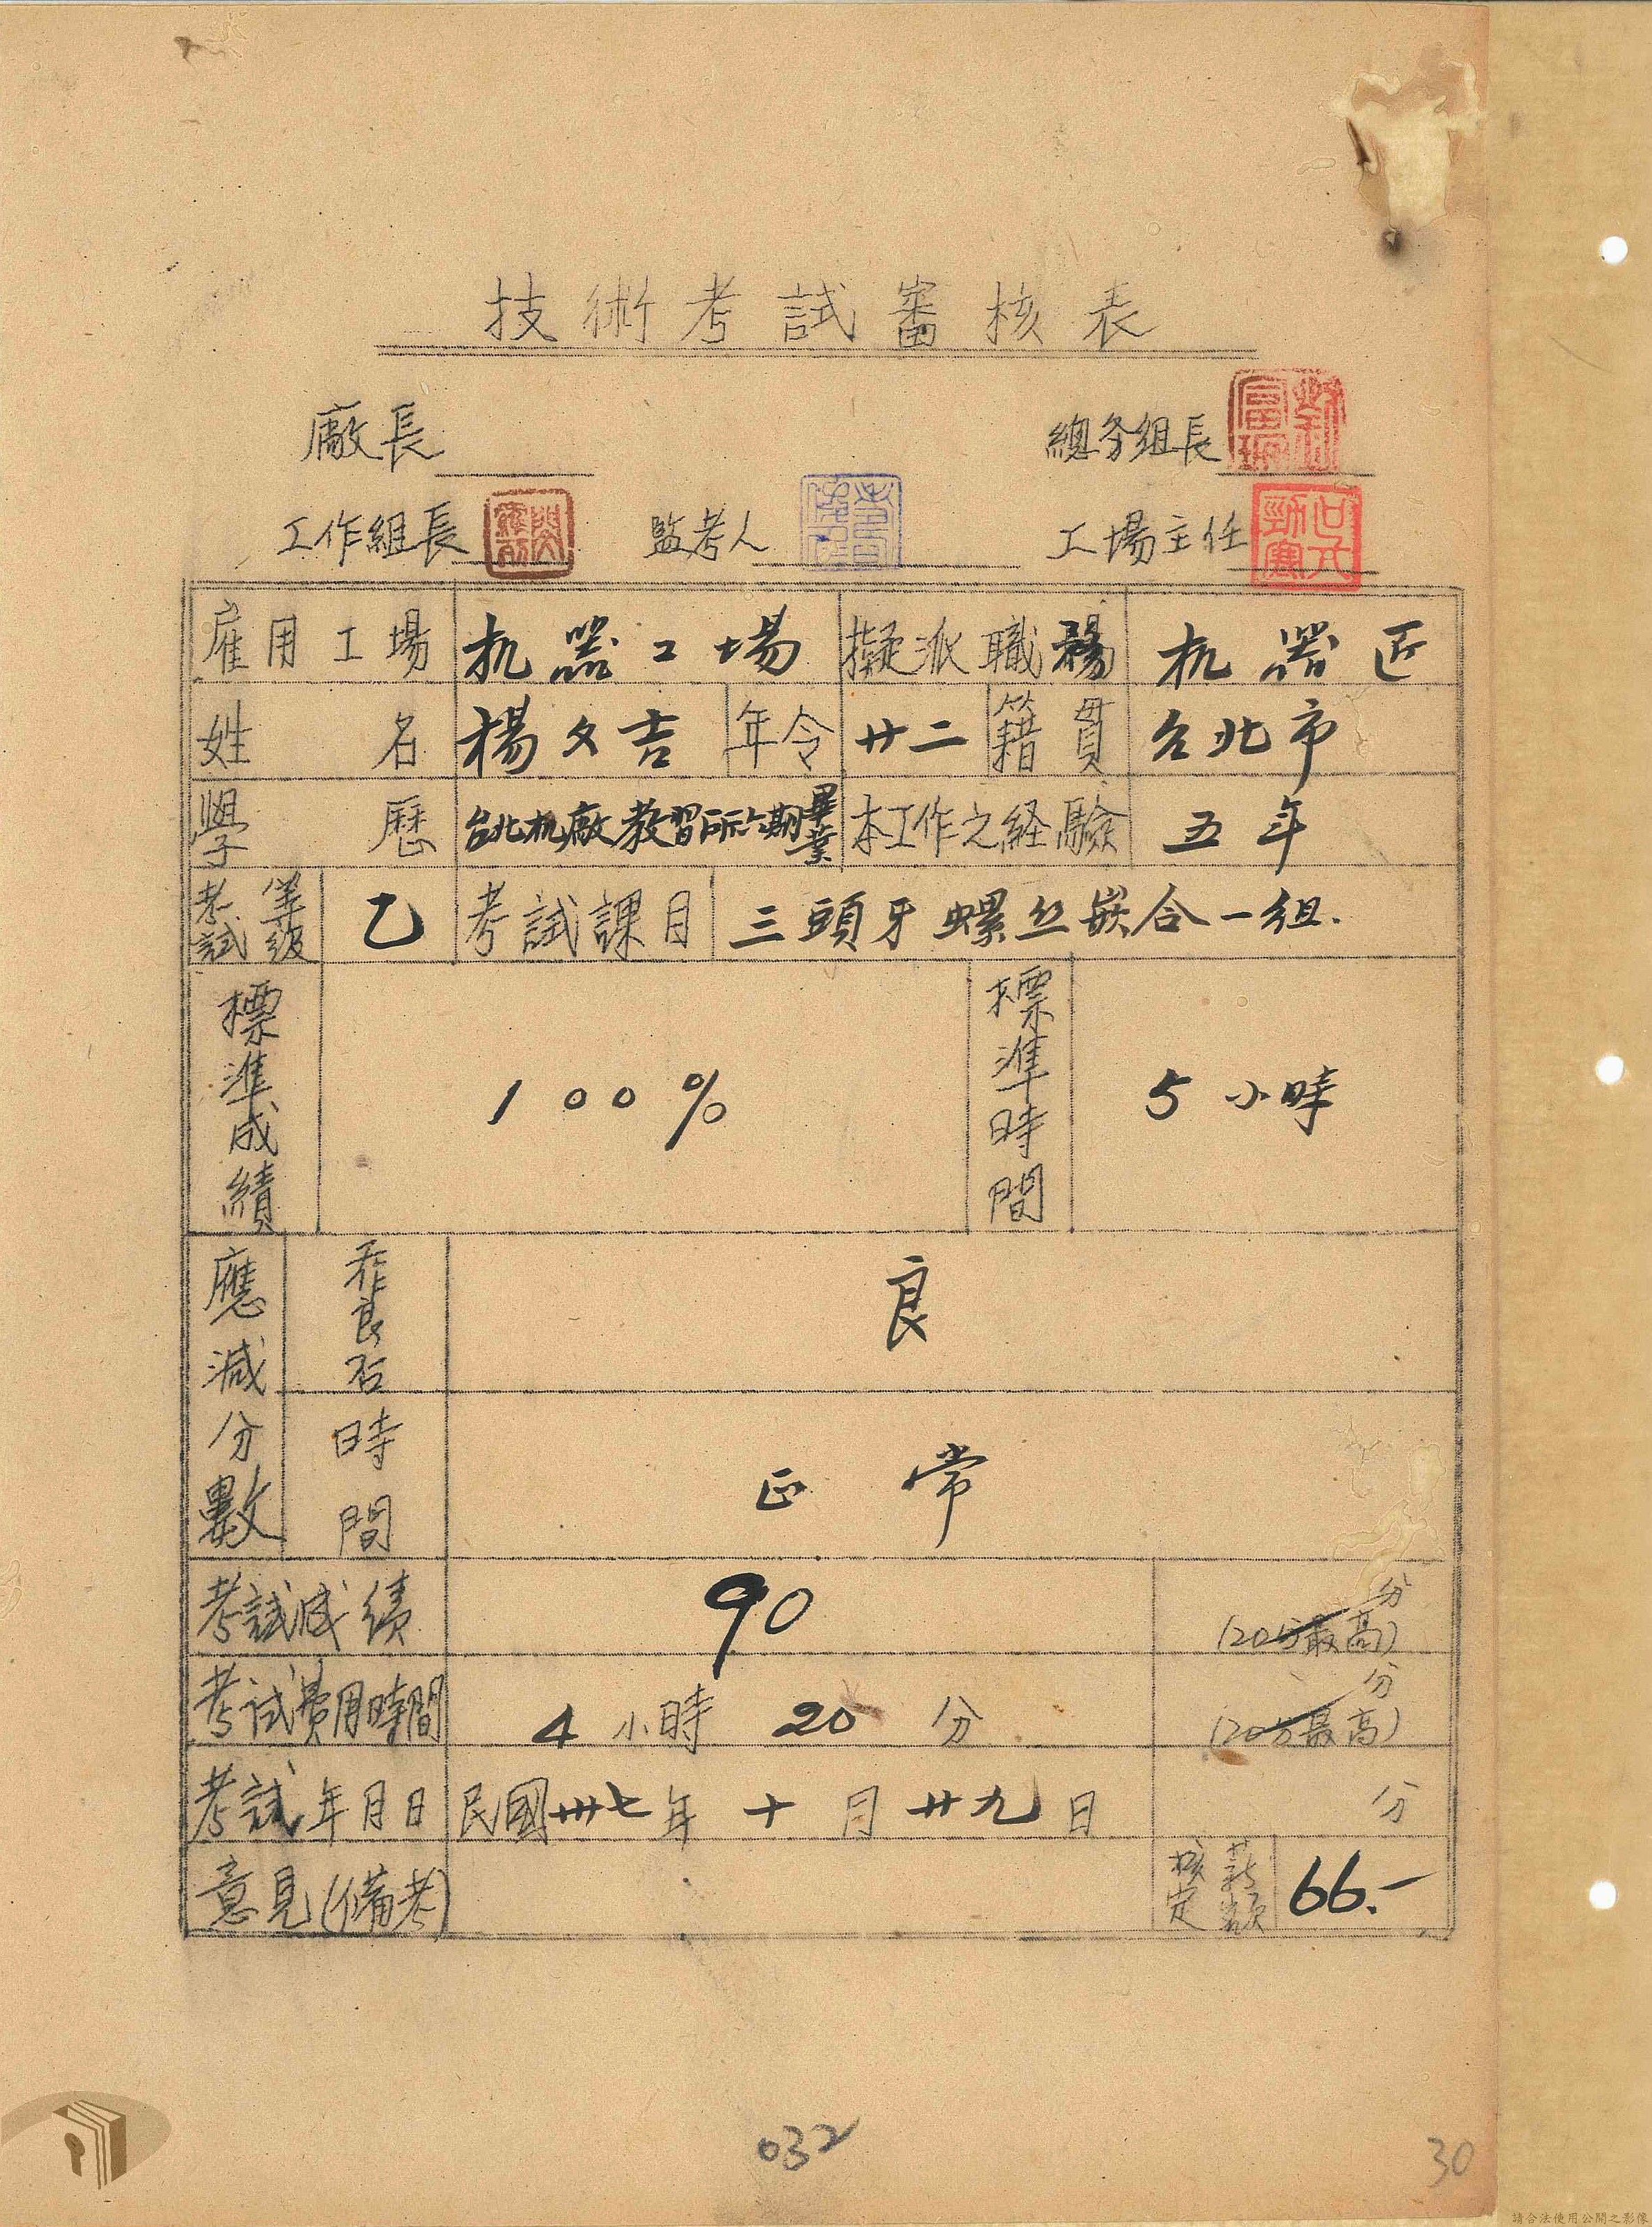 技術考試審核表
廠長
總务組長
工作組長 監考人 工場主任
雇用工場 机器工場 擬派職務 机器匠
姓名 楊文吉 年令 廿二 籍貫 台北市
學歷 台北机廠教習所六期畢業 本工作之経驗 五年
考試等級 乙 考試課目 三頭牙螺丝嵌合一組.
標準成績 100% 標準時間 5小時
應減分數 良否 良
時間 正常
考試成績 90 分
(20分最高)
考試費用時間 4小時20分 分
(20分最高)
考試年月日 民國卅七年十月廿九日 分
意見(備考) 核定薪額 66.-
032
30
請合法使用公開之影像